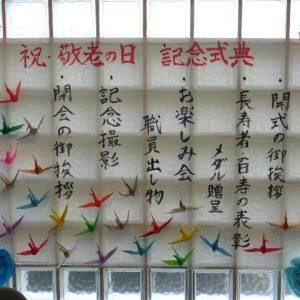 祝・敬老の日 記念式典
・開式の御挨拶
・長寿者・百寿の表彰
メダル贈呈
・お楽しみ会
職員出し物
・記念撮影
・閉会の御挨拶